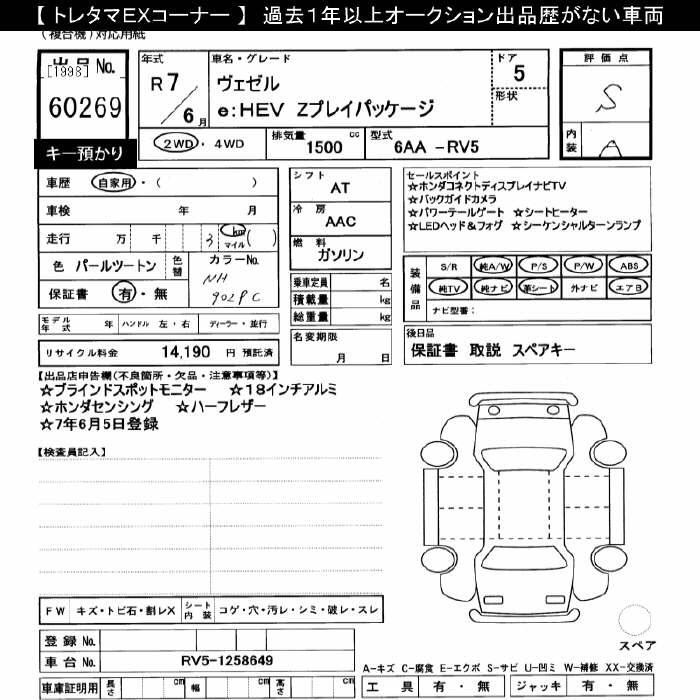 【 トレタマEXコーナー 】 過去1年以上オークション出品歴がない車両
(複合機)対応用紙
出品 No.
[1998]
60269
キー預かり
年式
R 7 / 6 月
車名・グレード
ヴェゼル
e:HEV Zプレイパッケージ
ドア
5
形状
評価点
S
内装
A
2WD・4WD
排気量 cc
1500
型式
6AA -RV5
車歴 自家用・( )
車検 年 月
走行 万 千 3 km マイル ( )
色 パールツートン 色替
カラーNo.
NH
902PC
保証書 有・無
シフト
AT
冷房
AAC
燃料
ガソリン
乗車定員 名
積載量 kg
総重量 kg
セールスポイント
☆ホンダコネクトディスプレイナビTV
☆バックガイドカメラ
☆パワーテールゲート ☆シートヒーター
☆LEDヘッド&フォグ ☆シーケンシャルターンランプ
装備品
S/R 純A/W P/S P/W ABS
純TV 純ナビ 革シート 外ナビ エアB
ナビ型番:
モデル年式 年 ハンドル 左・右 ディーラー・並行
名変期限
月 日
後日品
保証書 取説 スペアキー
リサイクル料金 14,190 円 預託済
【出品店申告欄(不良箇所・欠品・注意事項等)】
☆ブラインドスポットモニター ☆18インチアルミ
☆ホンダセンシング ☆ハーフレザー
☆7年6月5日登録
【検査員記入】
FW キズ・トビ石・割レX シート内装 コゲ・穴・汚レ・シミ・破レ・スレ
スペア
登録 No.
車台 No. RV5-1258649
A-キズ C-腐食 E-エクボ S-サビ U-凹ミ W-補修 XX-交換済
車庫証明用 長さ cm 幅 cm 高さ cm
工具 有・無 ジャッキ 有・無